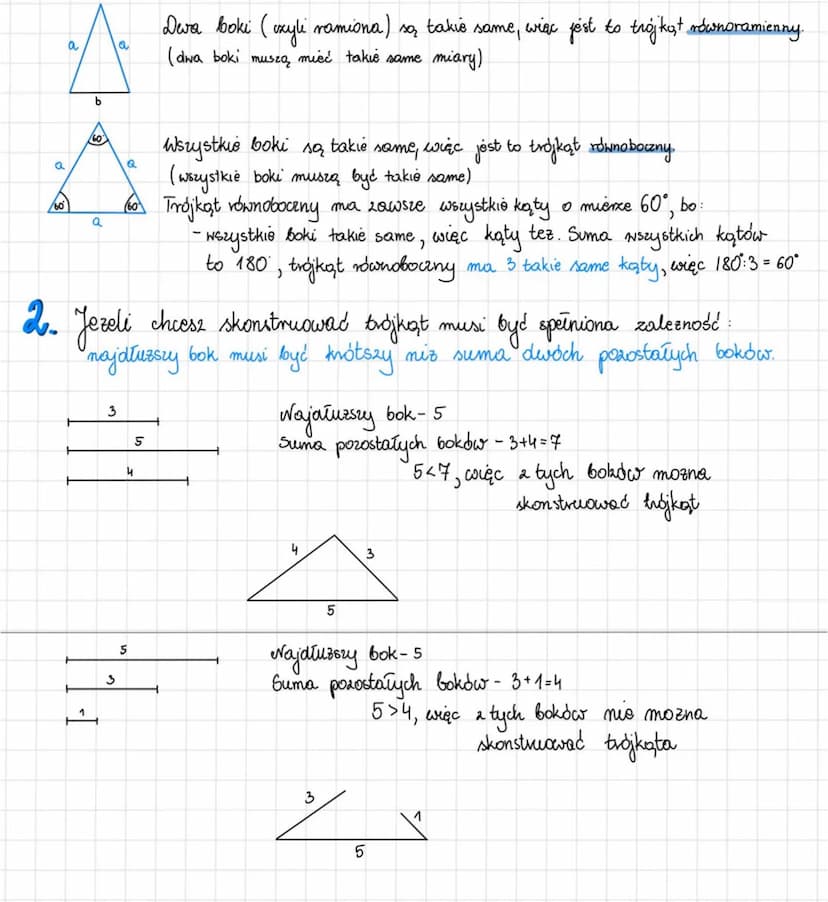 a a
Dwa boki (czyli ramiona) są takie same, więc jest to trójkąt równoramienny.
(dwa boki muszą mieć takie same miary)
b
60°
Wszystkie boki są takie same, więc jest to trójkąt równoboczny.
a a
(wszystkie boki muszą być takie same)
60° 60°
Trójkąt równoboczny ma zawsze wszystkie kąty o mierze 60°, bo:
a
- wszystkie boki takie same, więc kąty też. Suma wszystkich kątów
to 180°, trójkąt równoboczny ma 3 takie same kąty, więc 180°:3 = 60°
2. Jeżeli chcesz skonstruować trójkąt musi być spełniona zależność:
najdłuższy bok musi być krótszy niż suma dwóch pozostałych boków.
3
Najdłuższy bok - 5
5
Suma pozostałych boków - 3+4=7
4
5<7, więc z tych boków można
skonstruować trójkąt
4 3
5
5
Najdłuższy bok - 5
3
Suma pozostałych boków - 3+1=4
1
5>4, więc z tych boków nie można
skonstruować trójkąta
3 1
5